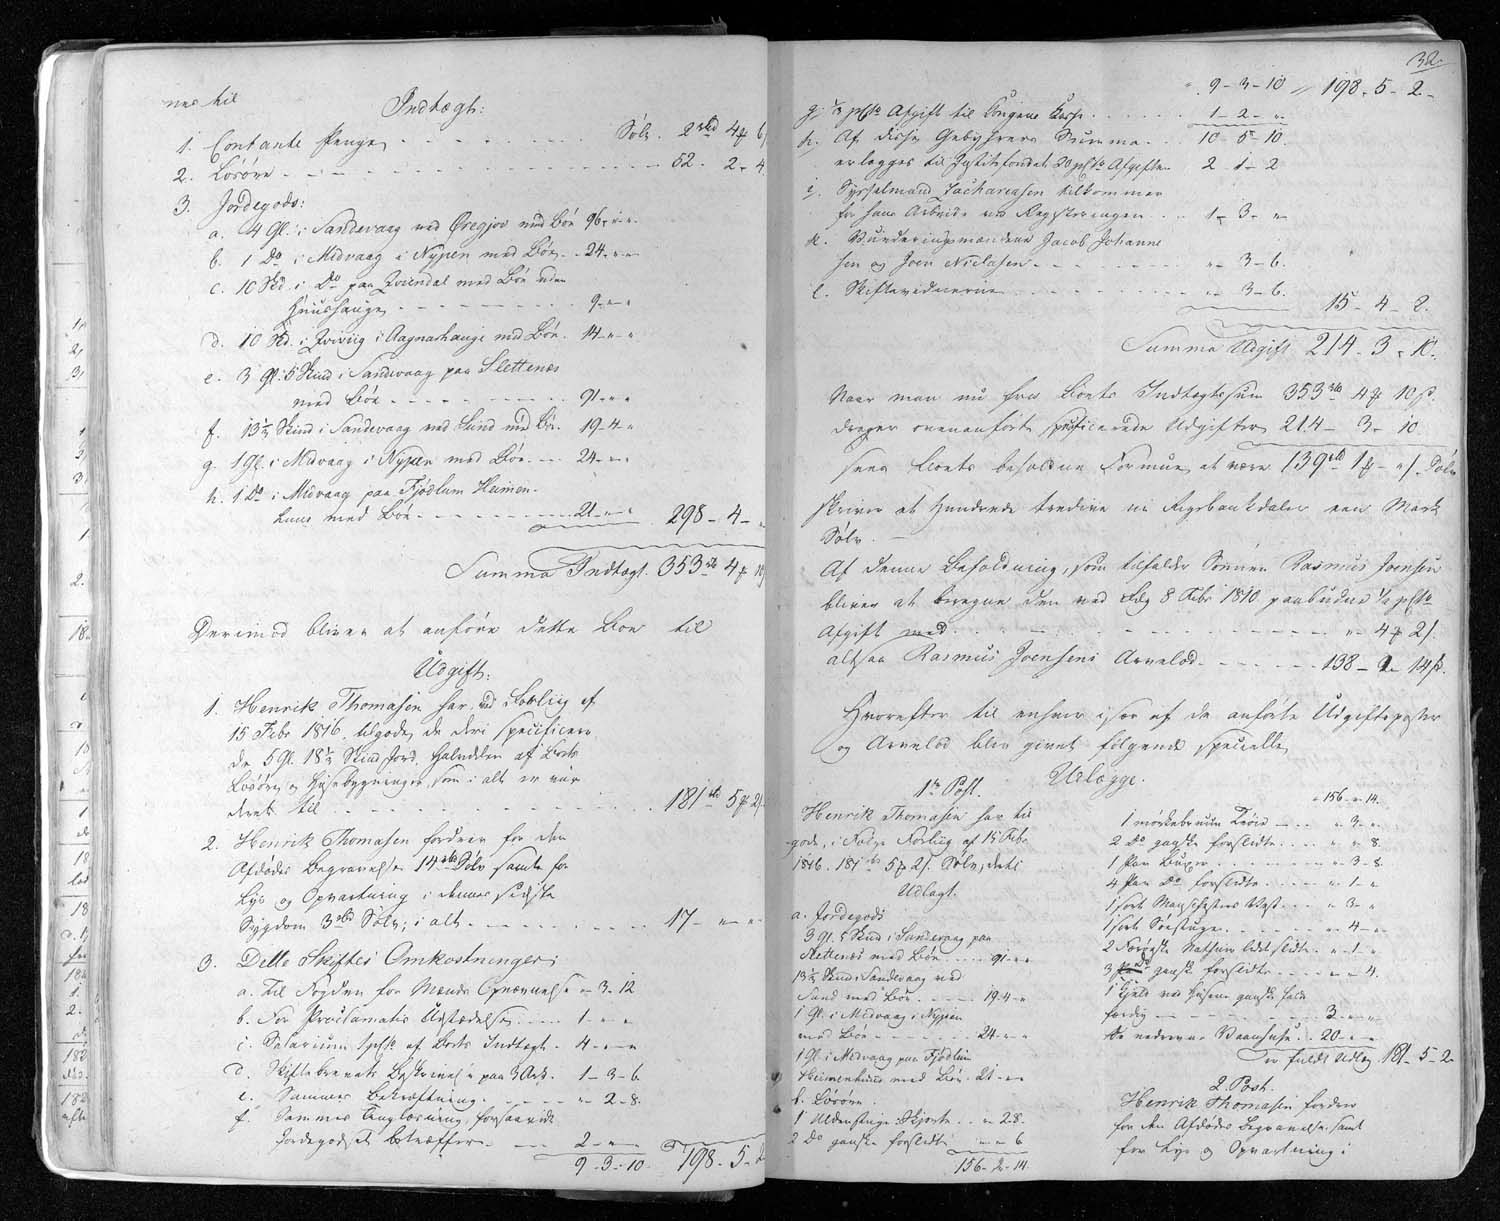 nes til
Indtægt:
1. Contante Penge . . . . . . Sølv. 2 rbd 4 ₻ 6
2. Løsøre - - - - - - 52. 2 - 4.
3. Jordegods:
a. 4 Gl. i Sandevaag ved Øregjov med Bøe 96. " - "
b. 1 Do i Midvaag i Nypen med Bøe. . 24. " - "
c. 10 Skd. i Do paa Qviendal med Bøe uden
Huushauge - - - - - - 9 - " - "
d. 10 Skd. i Qviviig i Ragnashauge med Bøe. 14 - " - "
e. 3 Gl. 5 Skind i Sandevaag paa Slettenæs
med Bøe - - - - - - 91 - " - "
f. 13½ Skind i Sandevaag ved Sund med Bøe. 19 - 4 - "
g. 1 Gl. i Midvaag i Nypen med Bøe. - - 24 - " - "
h. 1 Do i Midvaag paa Fjødlum Heimen-
huus med Bøe - - - - - - 21 - " - " 298 - 4 - "
Summa Indtægt. 353 rbd 4 ₻ 10
Derimod bliver at anføre dette Boe til
Udgift:
1. Henrik Thomasen har ved Forliig af
15 Febr. 1816 tilgode de deri specificere-
de 5 Gl. 18½ Skind Jord, Halvdelen af Boets
Løsøre og Huusebygninger, som i alt er vur-
deret til . . . . . . 181 rbd 5 ₻ 2 s.
2. Henrik Thomasen fordrer for den
Afdødes Begravelse 14 rbd Sølv samt for
Lys og Opvartning i dennes sidste
Sygdom 3 rbd Sølv; i alt - - - - - 17 - " - "
3. Dette Skiftes Omkostninger:
a. til Fogden for Mænds Opnævnelse " - 3 - 12
b. For Proclamatis Udstædelse . . . . 1 - " - "
c. Salarium 1 pCt. af Boets Indtægt. 4 - " - "
d. Skiftebrevets Beskrivelse paa 3 Ark. 1 - 3 - 6.
e. Sammes Bekræftning - - - - - " - 2 - 8.
f. Sammes Tinglæsning, forsaavidt
Jordegodset betræffer - - - - 2 - " - "
9 - 3 - 10. 198. 5. 2
32.
" 9 - 3 - 10 " 198. 5 - 2. -
g. ½ pCto Afgift til Kongens Kasse . . . . . . 1 - 2 - "
h. Af disse Gebyhrers Summa . . . 10 - 5 - 10.
erlægges til Justitsfondet 20 pCto Afgiften 2 - 1 - 2
i. Sysselmand Zachariasen tilkommer
for hans Arbeide ved Registeringen . . . 1 - 3 - "
k. Vurderingsmændene Jacob Johanne-
sen og Joen Niclasen - - - - - - " - 3 - 6.
l. Skiftevidnerne . . . . . . " - 3 - 6.
15 - 4 - 2.
Summa Udgift 214 - 3 - 10.
Naar man nu fra Boets Indtægtssum 353 rbd 4 ₻ 10 s.
drager ovenanførte specificerede Udgifter 214 - 3 - 10.
sees Boets beholdne Formue at være 139 rbd 1 ₻ - " s. Sølv
skriver et Hundrede tredive ni Rigsbankdaler een Mark
Sølv. -
Af denne Beholdning, som tilfalder Sønnen Rasmus Joensen
bliver at beregne den ved Fdg 8 Febr 1810 paabudne ½ pCto
Afgift med . . . . . . " - 4 ₻ 2 s.
altsaa Rasmus Joensens Arvelod - - - - - 138 - 2 - 14 s.
Hvorefter til enhver især af de anførte Udgiftsposter
og Arvelod blev givet følgende specielle
Udlægge.
1te Post.
Henrik Thomasen har til-
gode, i Følge Forliig af 15 Febr
1816. 181 rbd 5 ₻ 2 s. Sølv, derti
Udlagt.
a. Jordegods
3 Gl. 5 Skind i Sandevaag paa
Slettenæs med Bøe . . . . 91 - " - "
13½ Skind i Sandevaag ved
Sund med Bøe. - - - - 19. 4 - "
1 Gl. i Midvaag i Nypen
med Bøe - - - - - 24 - " - "
1 Gl. i Midvaag paa Fjødlum
Heimenhuus med Bøe. 21 - " - "
b. Løsøre.
1 Uldenstrie Skjorte . . " - 2 8.
2 Do ganske forslidte . - " - " - 6
156 - 2 - 14.
" 156 - " - 14.
1 mørkebruun Trøie - - - " - 3 - "
2 Do ganske forslidte . . . " - " - 8.
1 Par Buxer - - - - " - 3 - 8.
4 Par Do forslidte . . . . " - 1 - "
1 sort Manchesters Vest . . . " - 3 - "
1 sort Søestuge . . . . . " - 4 - "
2 Færøeske Nathuer lidet slidte . " - 1 - "
3 Do ganske forslidte . . . . " - " - 4.
1 Hjeld ved Husene ganske fald-
færdig - - - - - - 3 - " - "
De nederne Vaanhuse . 20 - " - "
er fuldt Udlæg 181 - 5 - 2
2. Post.
Henrik Thomasen fordrer
for den Afdødes Begravelse samt
for Lys og Opvartning i